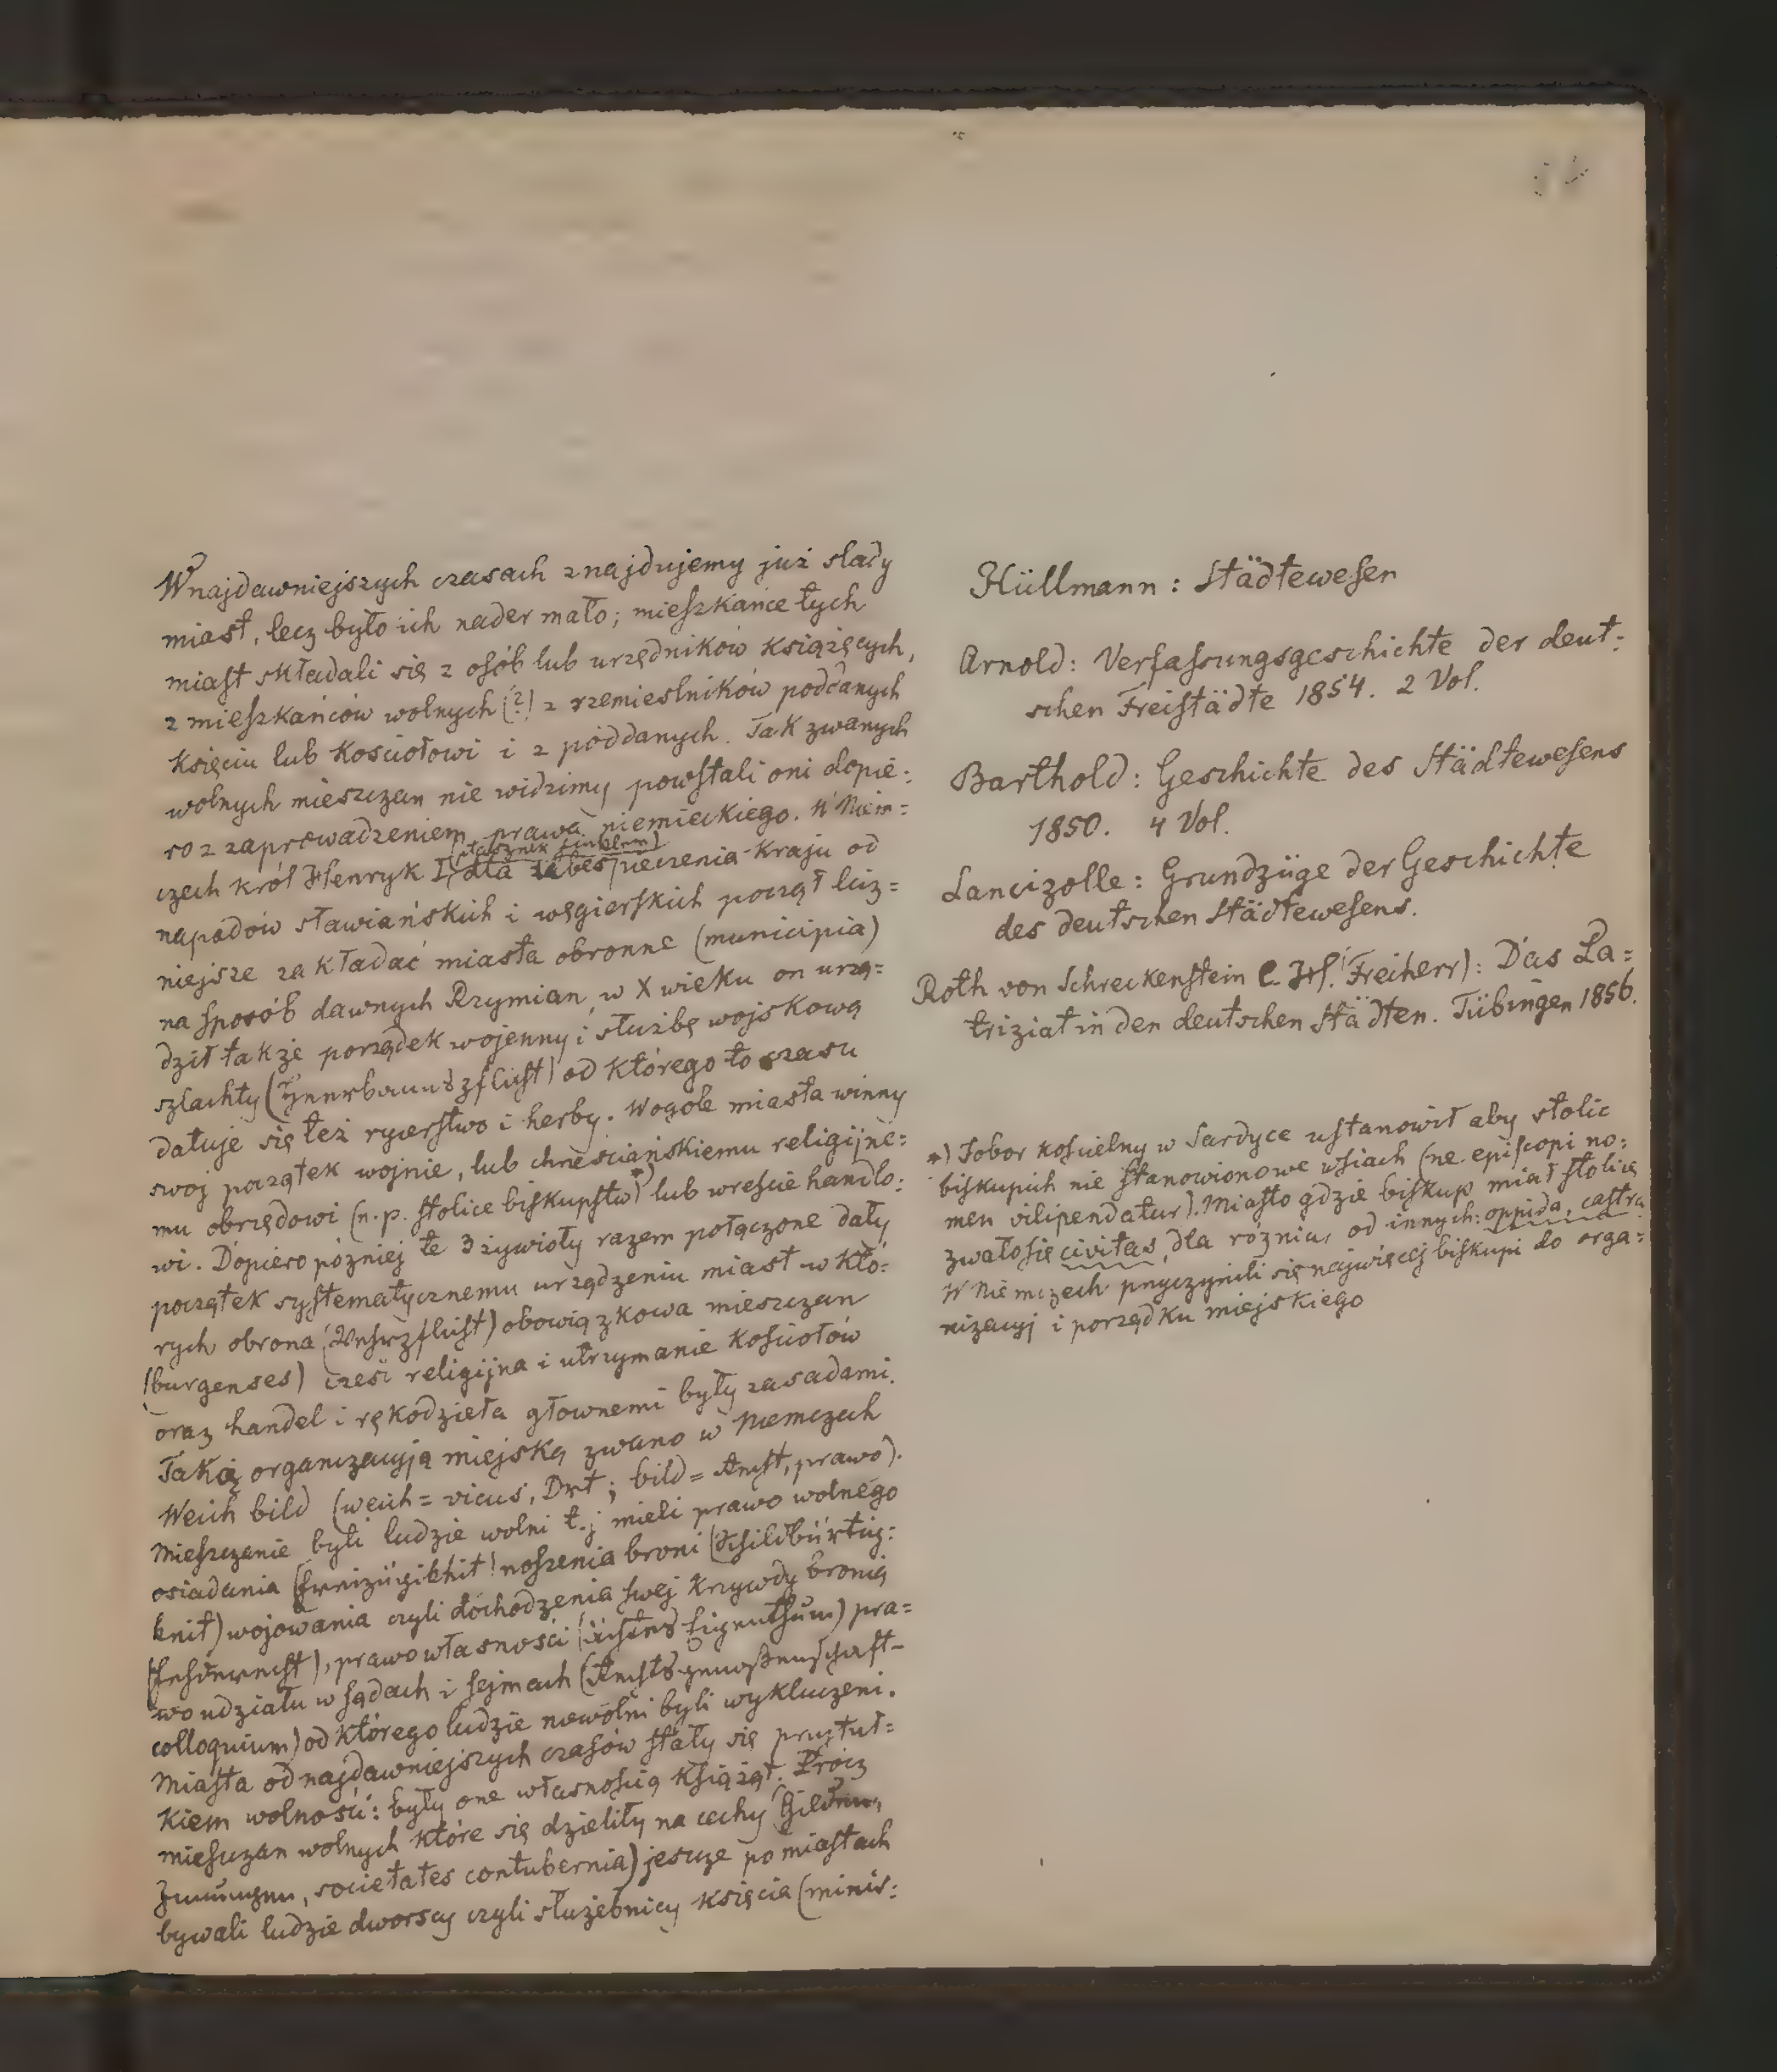 W najdawniejszych czasach znajdujemy już slady
miast, lecz było ich nader mało; mieszkańce tych
miast składali się z osób lub urzędników książęcych,
z mieszkańców wolnych (?) z rzemieslników poddanych
księciu lub Kosciołowi i z poddanych. Tak zwanych
wolnych mieszczan nie widzimy powstali oni dopie=
ro z zaprowadzeniem prawa niemieckiego. W Niem=
czech król Henryk I, (ptasznik finkler) dla zabespieczenia Kraju od
napadów sławiańskich i węgierskich począł licz=
niejsze zakładać miasta obronne (municipia)
na sposób dawnych Rzymian, w X wieku on urzą=
dził takze porządek wojenny i służbę wojskową
szlachty ( ) od którego to czasu
datuje się też rycerstwo i herby. Wogóle miasta winny
swój początek wojnie, lub chrześciańskiemu religijne=
mu obrzędowi (n.p. stolice biskupstw*) lub wreście handlo=
wi. Dopiero pózniej te 3 żywioły razem połączone dały
początek systematycznemu urządzeniu miast w któ=
rych obrona ( ) obowiązkowa mieszczan
(burgenses) cześć religijna i utrzymanie Kościołów
oraz handel i rękodzieła głownemi były zasadami.
Taką organizacyją miejską zwano w Niemczech
Weichbild (weich = vicus, Ort; bild = Recht, prawo).
Mieszczanie byli ludzie wolni t.j mieli prawo wolnego
osiadania (Freizügikhit) noszenia broni (Schildbürtig=
keit) wojowania czyli dochodzenia swej krzywdy bronią
(Fehderecht), prawo własności (ächtes Eigenthum) pra=
wo udziału w sądach i sejmach (Rechtsgenoßenschaft-
colloquium) od którego ludzie niewolni byli wykluczeni.
Miasta od najdawniejszych czasów stały się przytuł=
kiem wolności: były one własnością książąt. Prócz
mieszczan wolnych które się dzieliły na cechy (Gilden,
Innungen, societates contubernia) jescze po miastach
bywali ludzie dworscy czyli służebnicy księcia (minis=
Hüllmann: Städtewesen
Arnold: Verfassungsgeschichte der deut=
schen Freistädte 1854. 2 Vol.
Barthold: Geschichte des Städtewesens
1850. 4 Vol.
Lancizolle: Grundzüge der Geschichte
des deutschen Städtewesens.
Roth von Schreckenstein (Freiherr): Das Pa=
triziat in den deutschen Städten. Tübingen 1856.
*) Sobor kościelny w Sardyce ustanowił aby stolic
biskupich nie stanowiono we wsiach (ne episcopi no=
men vilipendatur). Miasto gdzie biskup miał stolicę
zwało się civitas, dla róznicy od innych: oppida, castra
W Niemczech przyczynili się najwięcej biskupi do orga=
nizacyj i porządku miejskiego